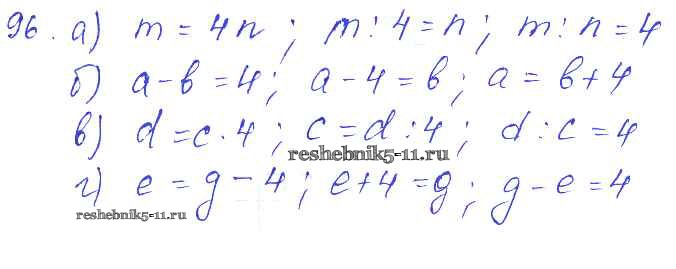 96. а) m = 4n ; m : 4 = n ; m : n = 4
б) a - b = 4 ; a - 4 = b ; a = b + 4
в) d = c · 4 ; c = d : 4 ; d : c = 4
reshebnik5-11.ru
г) e = g - 4 ; e + 4 = g ; g - e = 4
reshebnik5-11.ru